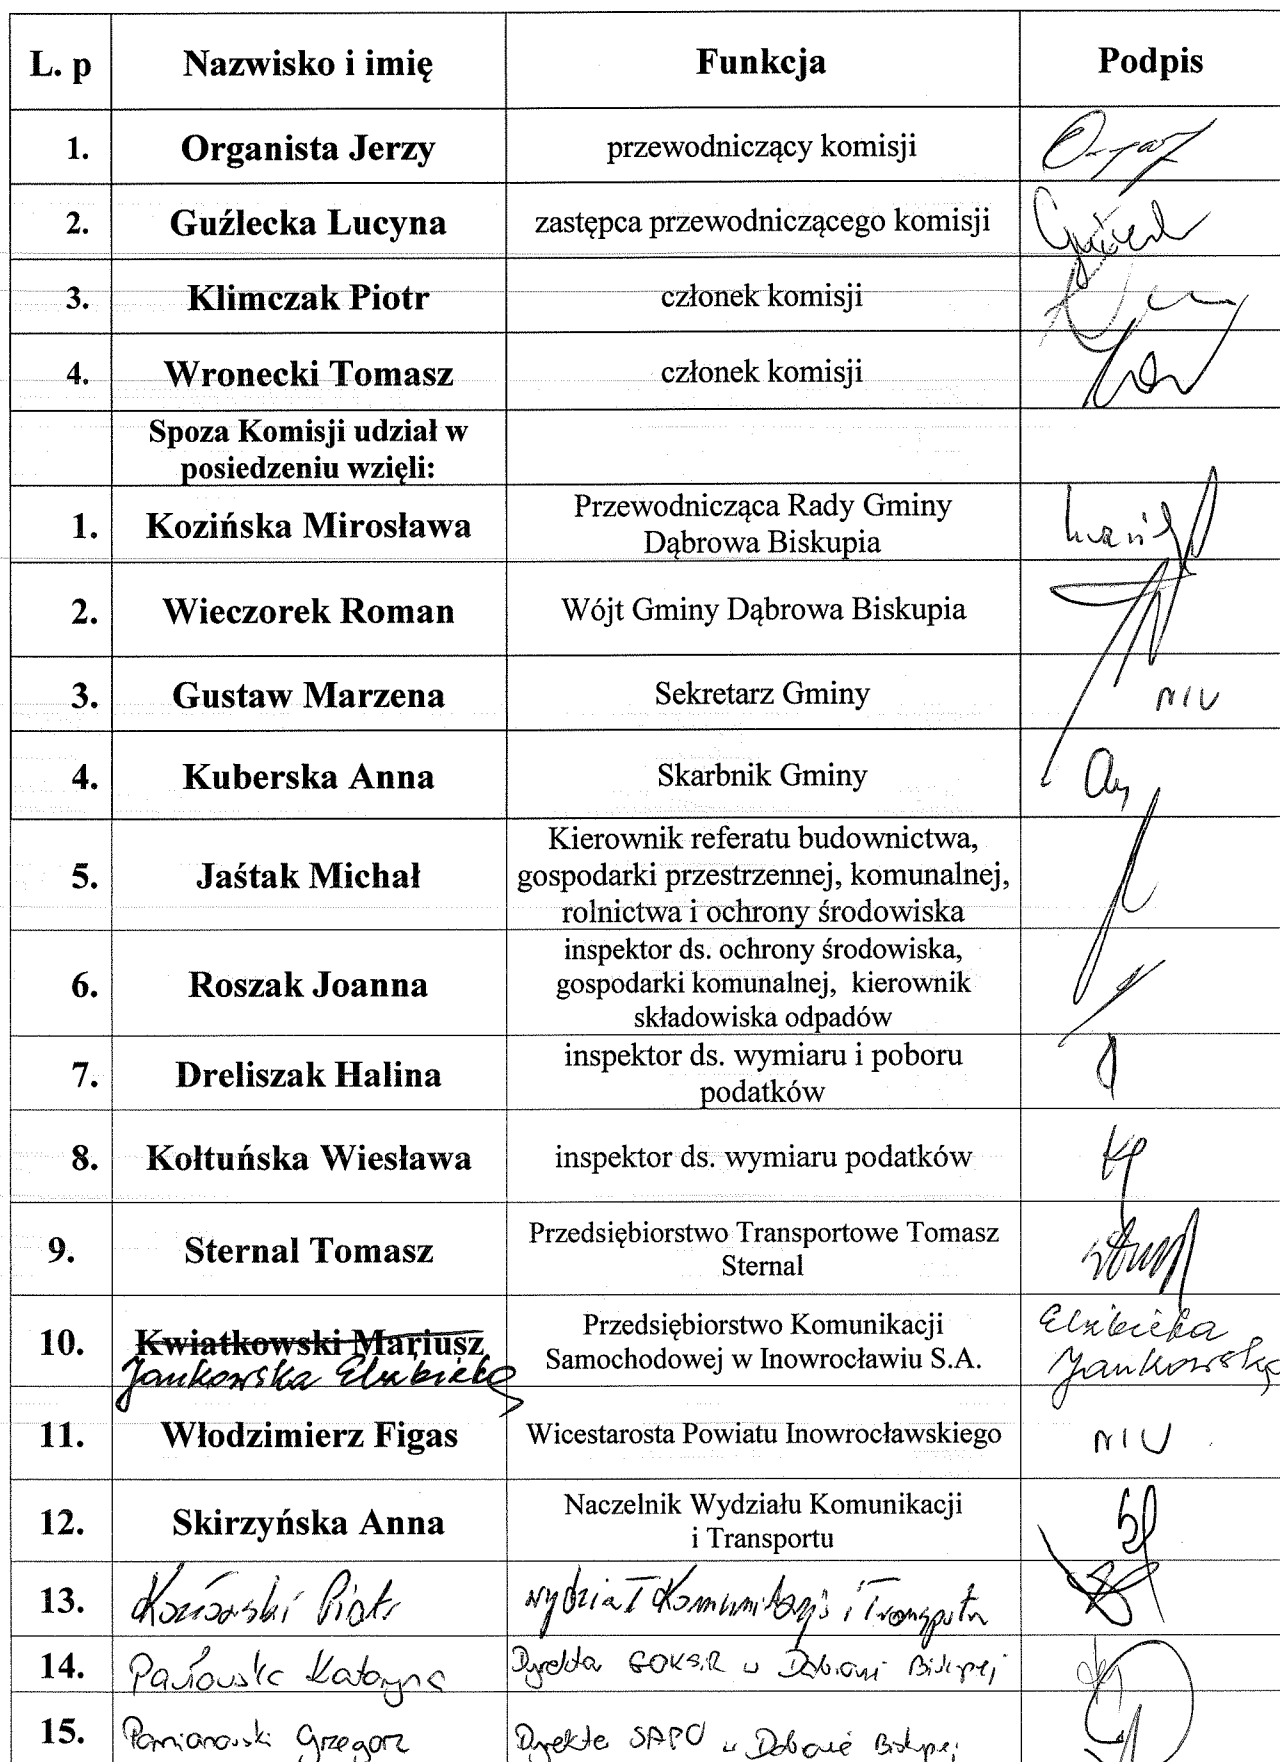 L. p Nazwisko i imię Funkcja Podpis
1. Organista Jerzy przewodniczący komisji
2. Guźlecka Lucyna zastępca przewodniczącego komisji
3. Klimczak Piotr członek komisji
4. Wronecki Tomasz członek komisji
Spoza Komisji udział w
posiedzeniu wzięli:
1. Kozińska Mirosława Przewodnicząca Rady Gminy
Dąbrowa Biskupia
2. Wieczorek Roman Wójt Gminy Dąbrowa Biskupia
3. Gustaw Marzena Sekretarz Gminy NIU
4. Kuberska Anna Skarbnik Gminy
5. Jaśtak Michał Kierownik referatu budownictwa,
gospodarki przestrzennej, komunalnej,
rolnictwa i ochrony środowiska
6. Roszak Joanna inspektor ds. ochrony środowiska,
gospodarki komunalnej, kierownik
składowiska odpadów
7. Dreliszak Halina inspektor ds. wymiaru i poboru
podatków
8. Kołtuńska Wiesława inspektor ds. wymiaru podatków
9. Sternal Tomasz Przedsiębiorstwo Transportowe Tomasz
Sternal
10. Kwiatkowski Mariusz Przedsiębiorstwo Komunikacji Elżbieta
Jankowska Elżbieta Samochodowej w Inowrocławiu S.A. Jankowska
11. Włodzimierz Figas Wicestarosta Powiatu Inowrocławskiego NIU
12. Skirzyńska Anna Naczelnik Wydziału Komunikacji
i Transportu
13. Piotr Wydział Komunikacji i Transportu
14. Pawłowska Katarzyna Dyrektor GOKSiR w Dąbrowie Biskupiej
15. Pomianowski Grzegorz Dyrektor SAPO w Dąbrowie Biskupiej